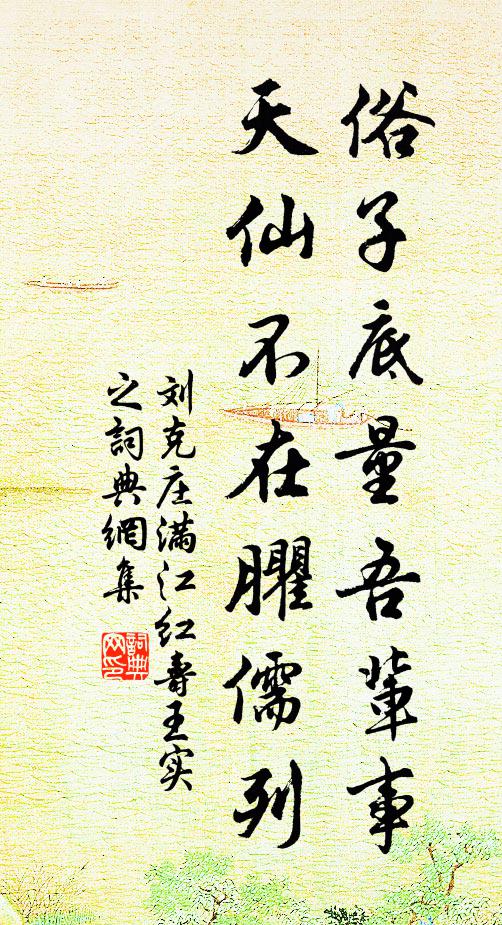 俗子底量吾辈事
天仙不在臞儒列
刘克庄满江红寿王实
之詞典網集
詞典网印